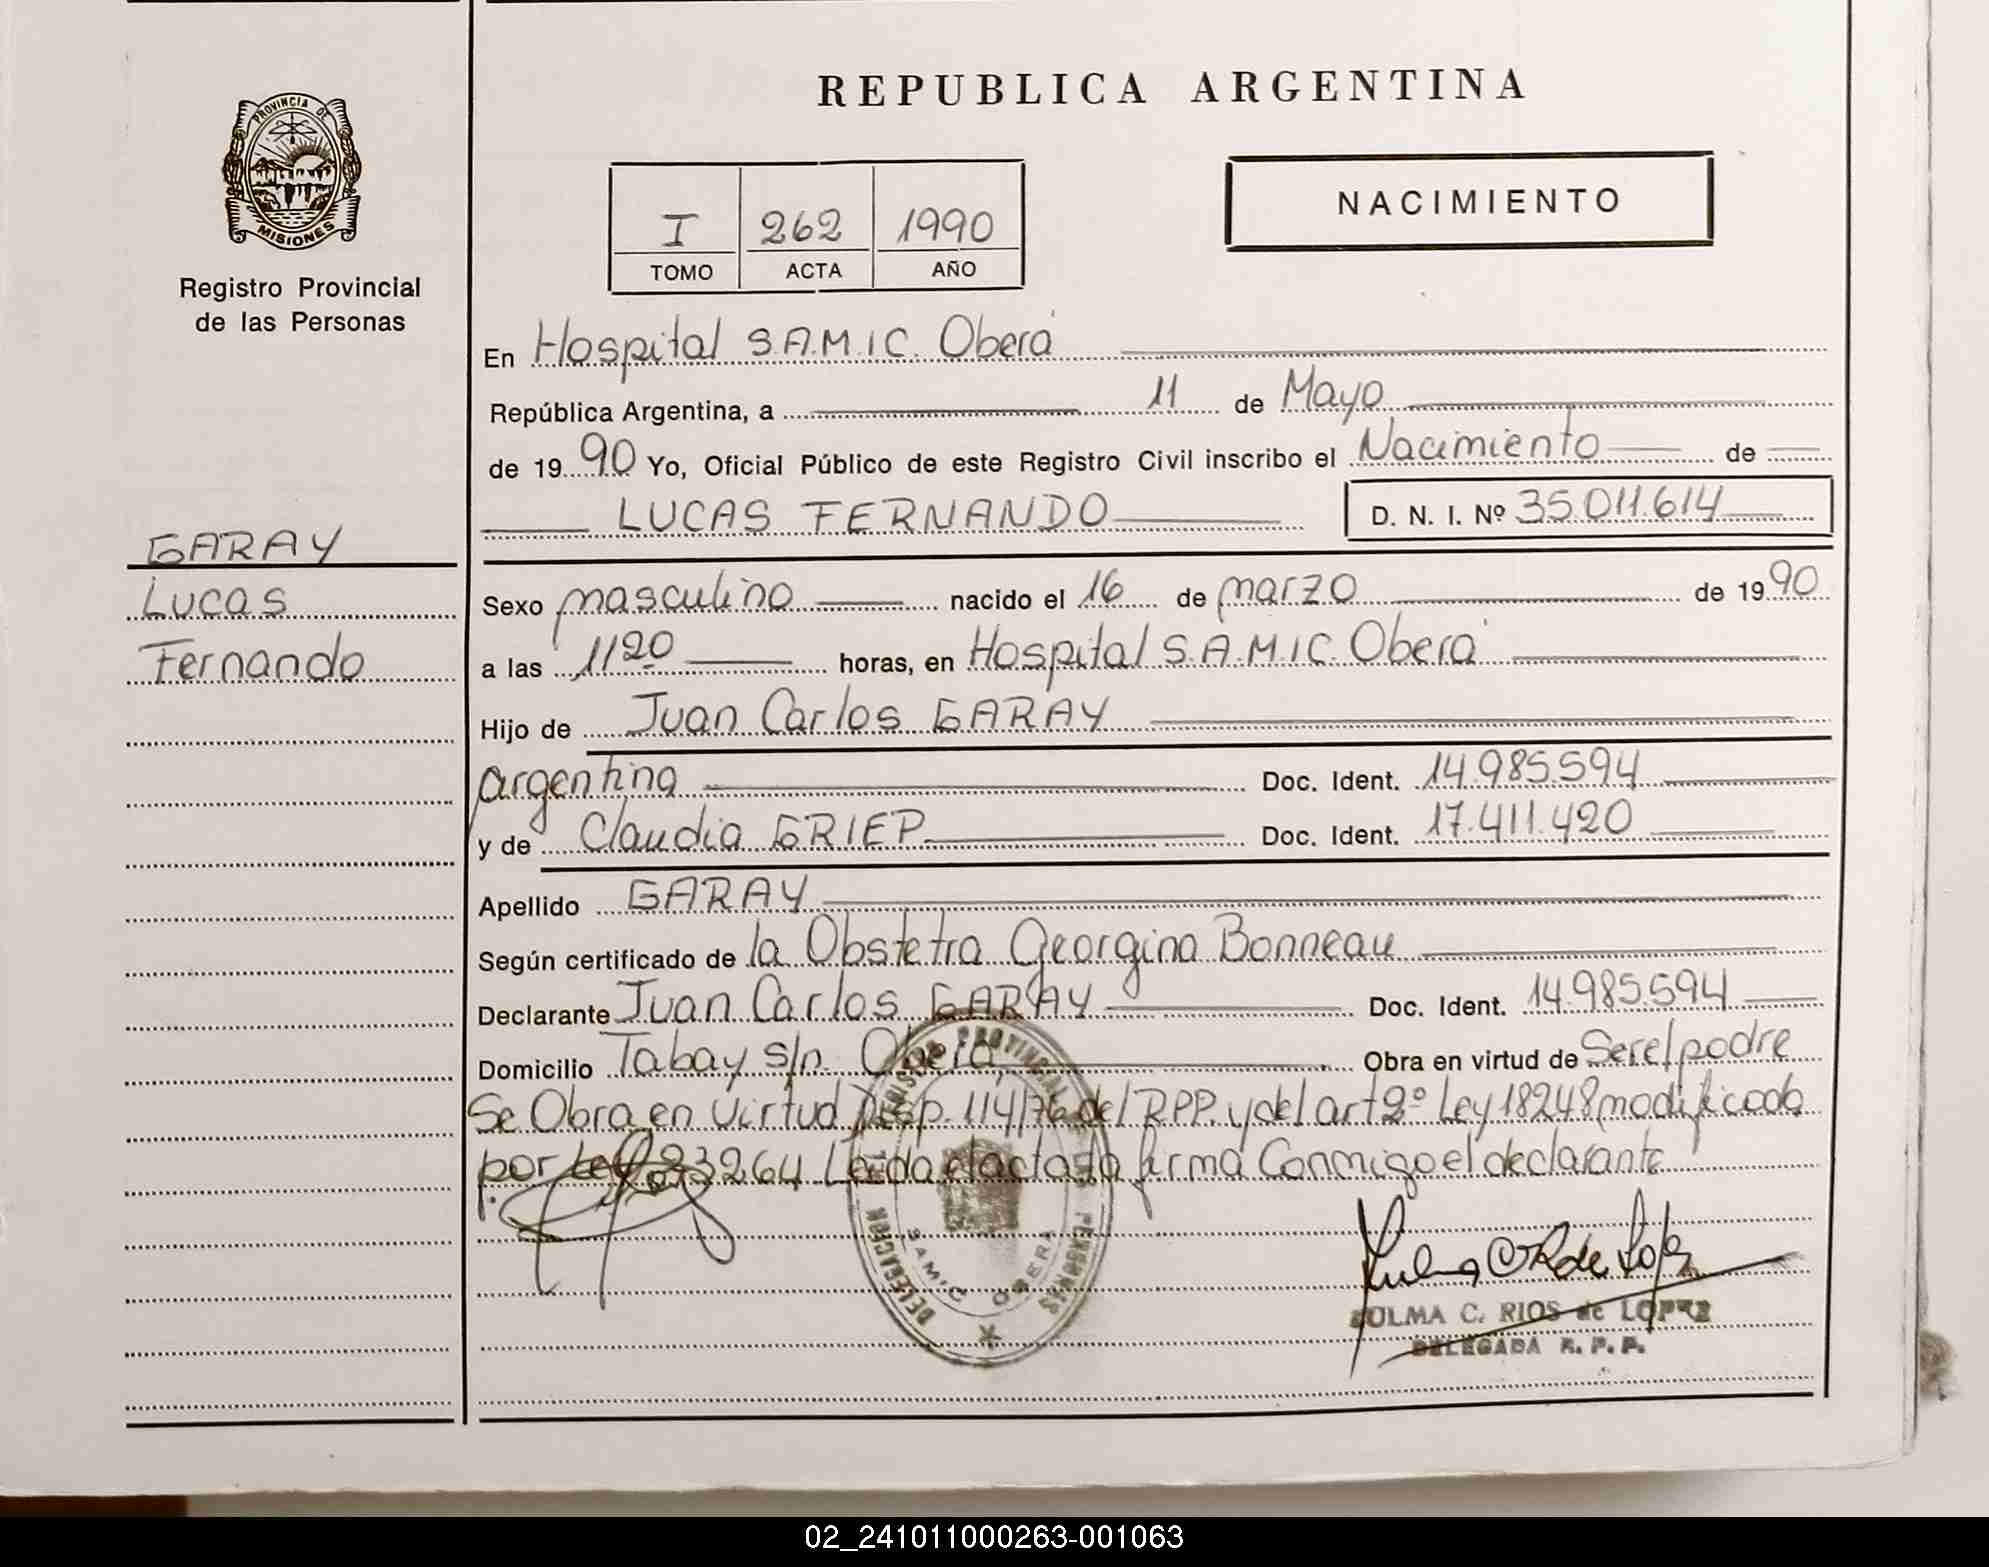 REPUBLICA ARGENTINA
PROVINCIA DE
MISIONES
Registro Provincial
de las Personas
I 262 1990
TOMO ACTA AÑO
NACIMIENTO
En Hospital S.A.M.I.C. Oberá
República Argentina, a 11 de Mayo
de 1990 Yo, Oficial Público de este Registro Civil inscribo el Nacimiento de
LUCAS FERNANDO D. N. I. Nº 35.011.614
GARAY
Lucas
Fernando
Sexo masculino nacido el 16 de marzo de 1990
a las 1120 horas, en Hospital S.A.M.I.C. Oberá
Hijo de Juan Carlos GARAY
argentina Doc. Ident. 14.985.594
y de Claudia GRIEP Doc. Ident. 17.411.420
Apellido GARAY
Según certificado de la Obstetra Georgina Bonneau
Declarante Juan Carlos GARAY Doc. Ident. 14.985.594
Domicilio Tabay s/n. Oberá Obra en virtud de Ser el padre
Se Obra en virtud Disp. 114/76 del R.P.P. y del art 2º Ley 18248 modificado
por Ley 23264 Leida el acta la firma Conmigo el declarante
PROVINCIAL
PERSONAS
DELEGACIÓN
SAMIC OBERA
ZULMA C. RIOS de LOPEZ
DELEGADA R. P. P.
02_241011000263-001063